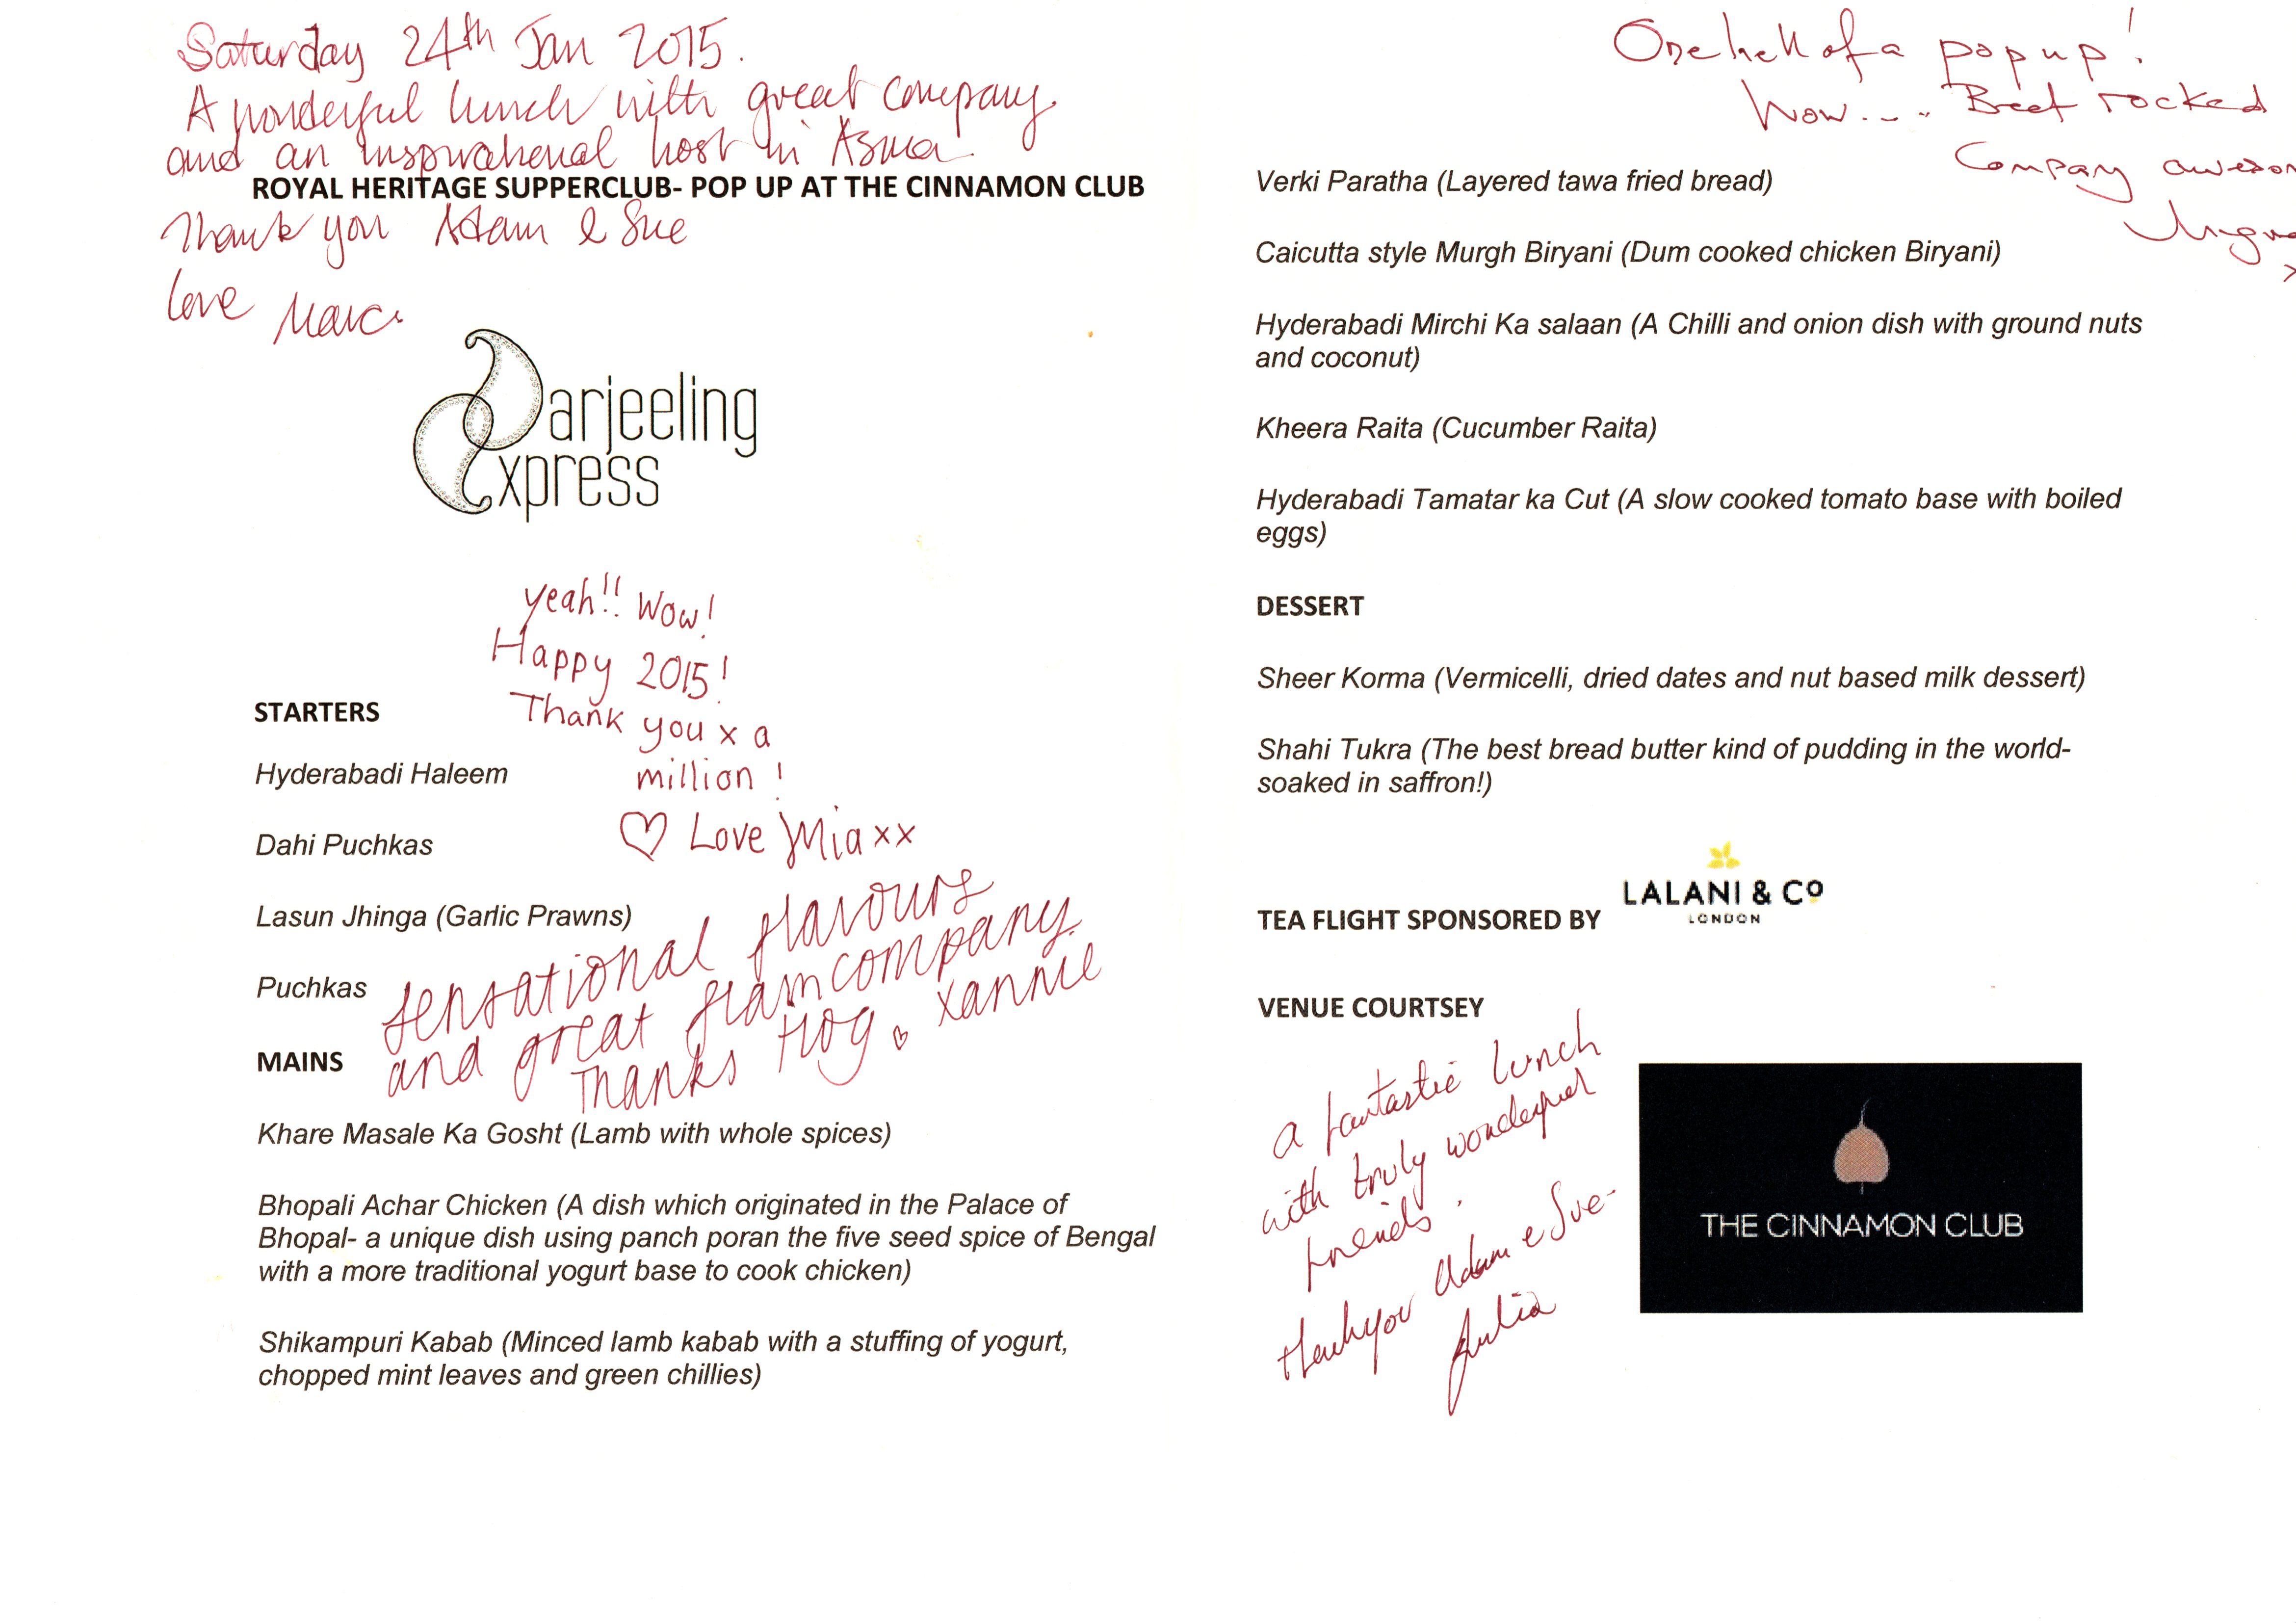 Saturday 24th Jan 2015.
A wonderful lunch with great company
and an inspirational host in Asma
ROYAL HERITAGE SUPPERCLUB- POP UP AT THE CINNAMON CLUB
Thank you Adam & Sue
love Marc.
Darjeeling
Express
yeah!! Wow!
Happy 2015!
Thank you x a
million!
♡ Love Mia xx
STARTERS
Hyderabadi Haleem
Dahi Puchkas
Lasun Jhinga (Garlic Prawns)
Puchkas
sensational flavours
and great company
Thanks xannie
MAINS
Khare Masale Ka Gosht (Lamb with whole spices)
Bhopali Achar Chicken (A dish which originated in the Palace of
Bhopal- a unique dish using panch poran the five seed spice of Bengal
with a more traditional yogurt base to cook chicken)
Shikampuri Kabab (Minced lamb kabab with a stuffing of yogurt,
chopped mint leaves and green chillies)
One hell of a pop up!
Wow.... Beef rocked
Company
Verki Paratha (Layered tawa fried bread)
Caicutta style Murgh Biryani (Dum cooked chicken Biryani)
Hyderabadi Mirchi Ka salaan (A Chilli and onion dish with ground nuts
and coconut)
Kheera Raita (Cucumber Raita)
Hyderabadi Tamatar ka Cut (A slow cooked tomato base with boiled
eggs)
DESSERT
Sheer Korma (Vermicelli, dried dates and nut based milk dessert)
Shahi Tukra (The best bread butter kind of pudding in the world-
soaked in saffron!)
TEA FLIGHT SPONSORED BY
LALANI & Co
LONDON
VENUE COURTSEY
a fantastic lunch
with truly wonderful
friends.
thankyou Adam & Sue-
Julia
THE CINNAMON CLUB